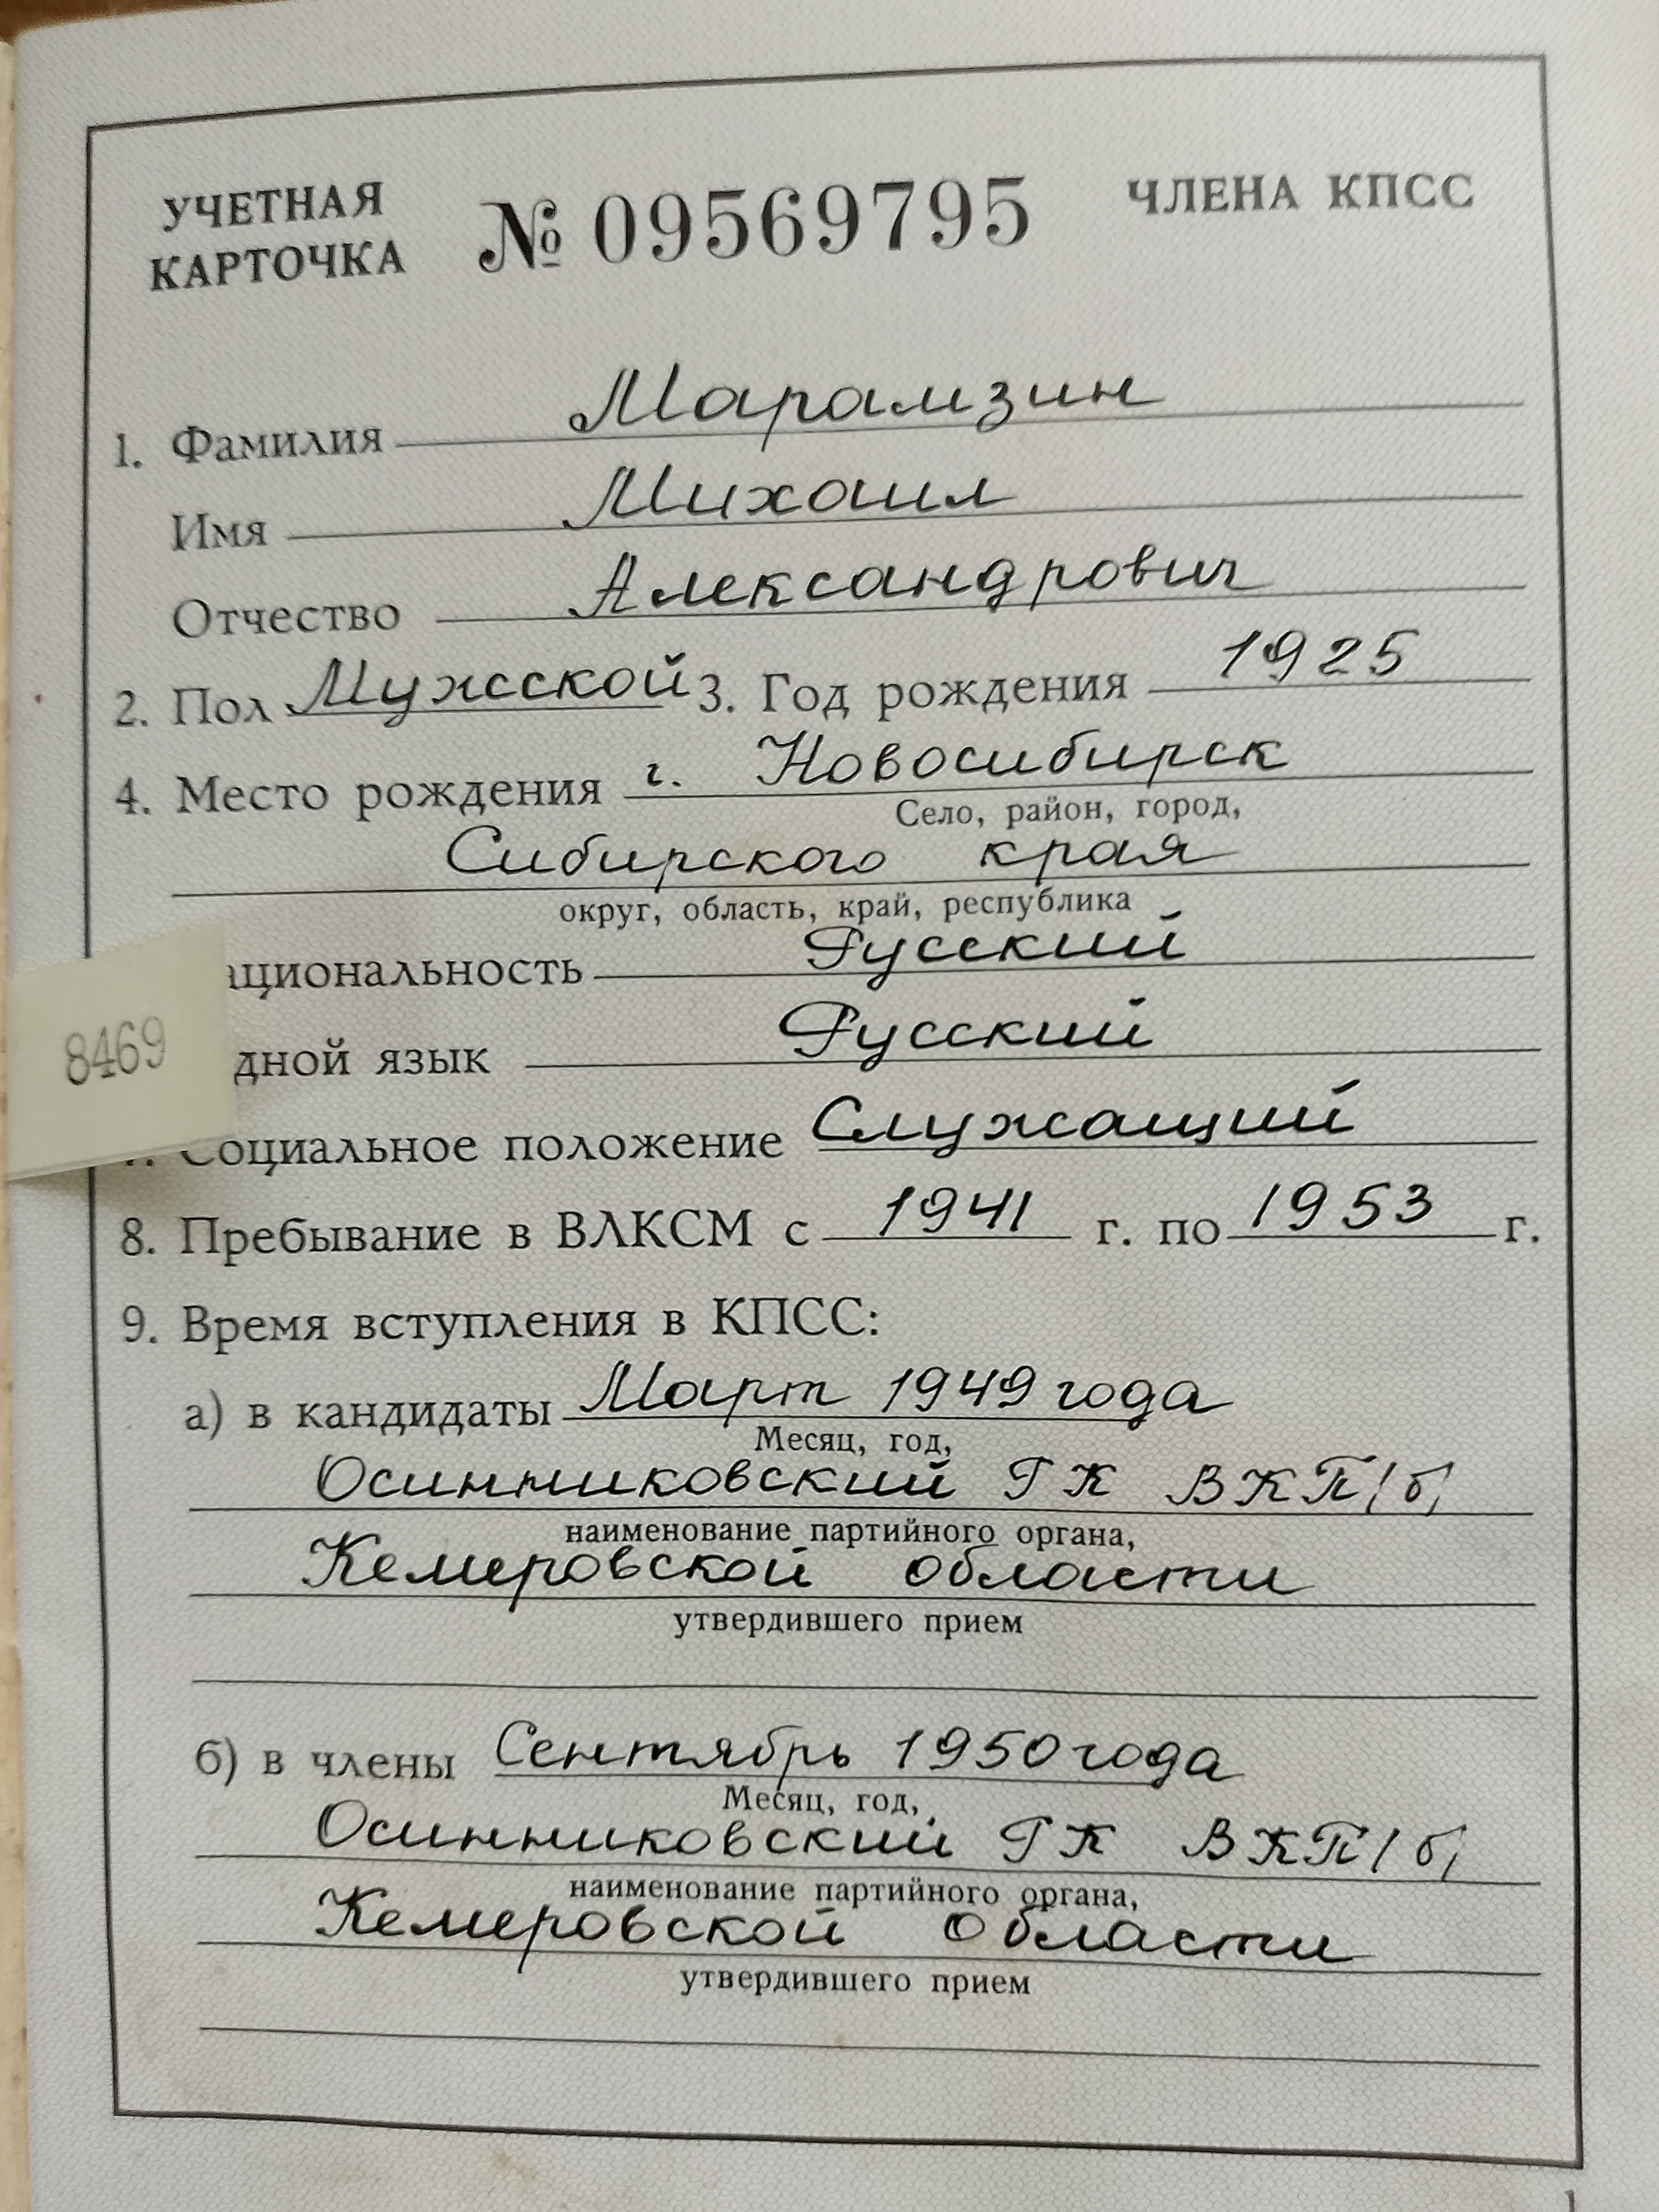 УЧЕТНАЯ
КАРТОЧКА № 09569795 ЧЛЕНА КПСС
1. Фамилия Марамзин
Имя Михаил
Отчество Александрович
2. Пол Мужской 3. Год рождения 1925
4. Место рождения г. Новосибирск
Село, район, город,
Сибирского края
округ, область, край, республика
ациональность Русский
8469
дной язык Русский
Социальное положение Служащий
8. Пребывание в ВЛКСМ с 1941 г. по 1953 г.
9. Время вступления в КПСС:
а) в кандидаты Март 1949 года
Месяц, год,
Осинниковский ГК ВКП/б/
наименование партийного органа,
Кемеровской области
утвердившего прием
б) в члены Сентябрь 1950 года
Месяц, год,
Осинниковский ГК ВКП/б/
наименование партийного органа,
Кемеровской области
утвердившего прием